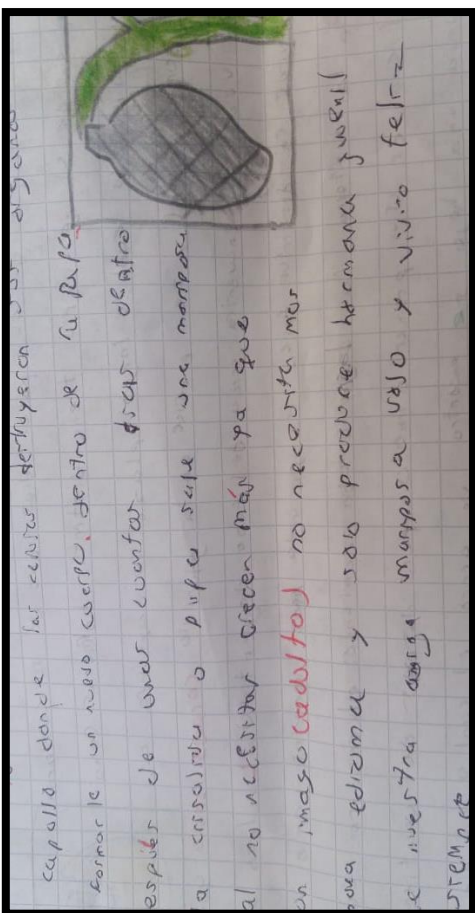 capollo donde las celulas
formarle un nuevo cuerpo. dentro de la Pupa.
espués de unas cuantas dias dentro
a crisalida o pupa sale una mariposa
al no necesitar crecen más ya que
un imago (adulto) no necesita mas
ona edisoma y solo produce hormona juvenil
e nuestra amiga mariposa voló y vivio feliz